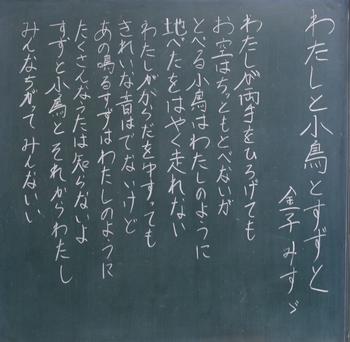 わたしと小鳥とすずと
金子みすゞ
わたしが両手をひろげても
お空はちっともとべないが
とべる小鳥はわたしのように
地べたをはやく走れない
わたしがからだをゆすっても
きれいな音はでないけど
あの鳴るすずはわたしのように
たくさんなうたは知らないよ
すずと小鳥とそれからわたし
みんなちがってみんないい